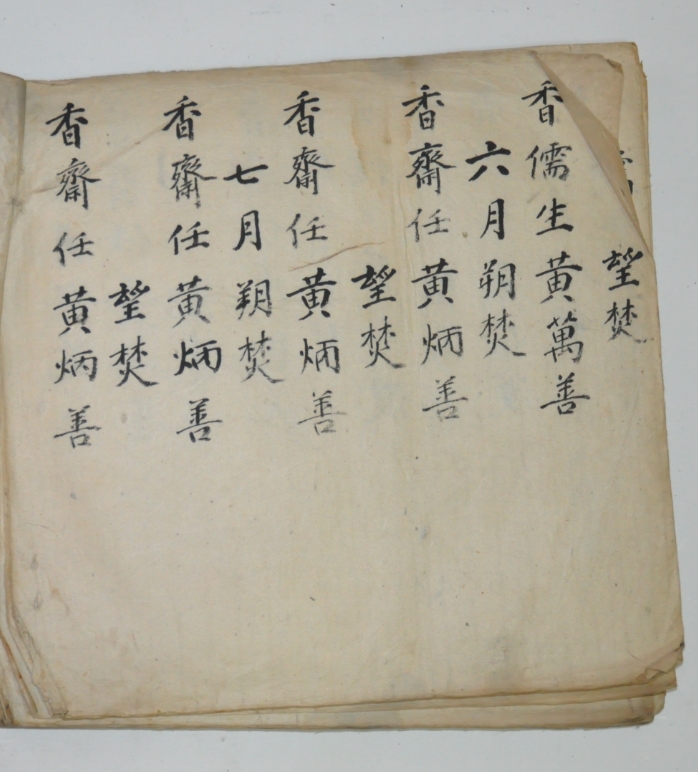 望焚
香儒生黃萬善
六月朔焚
香齋任黃炳善
望焚
香齋任黃炳善
七月朔焚
香齋任黃炳善
望焚
香齋任黃炳善